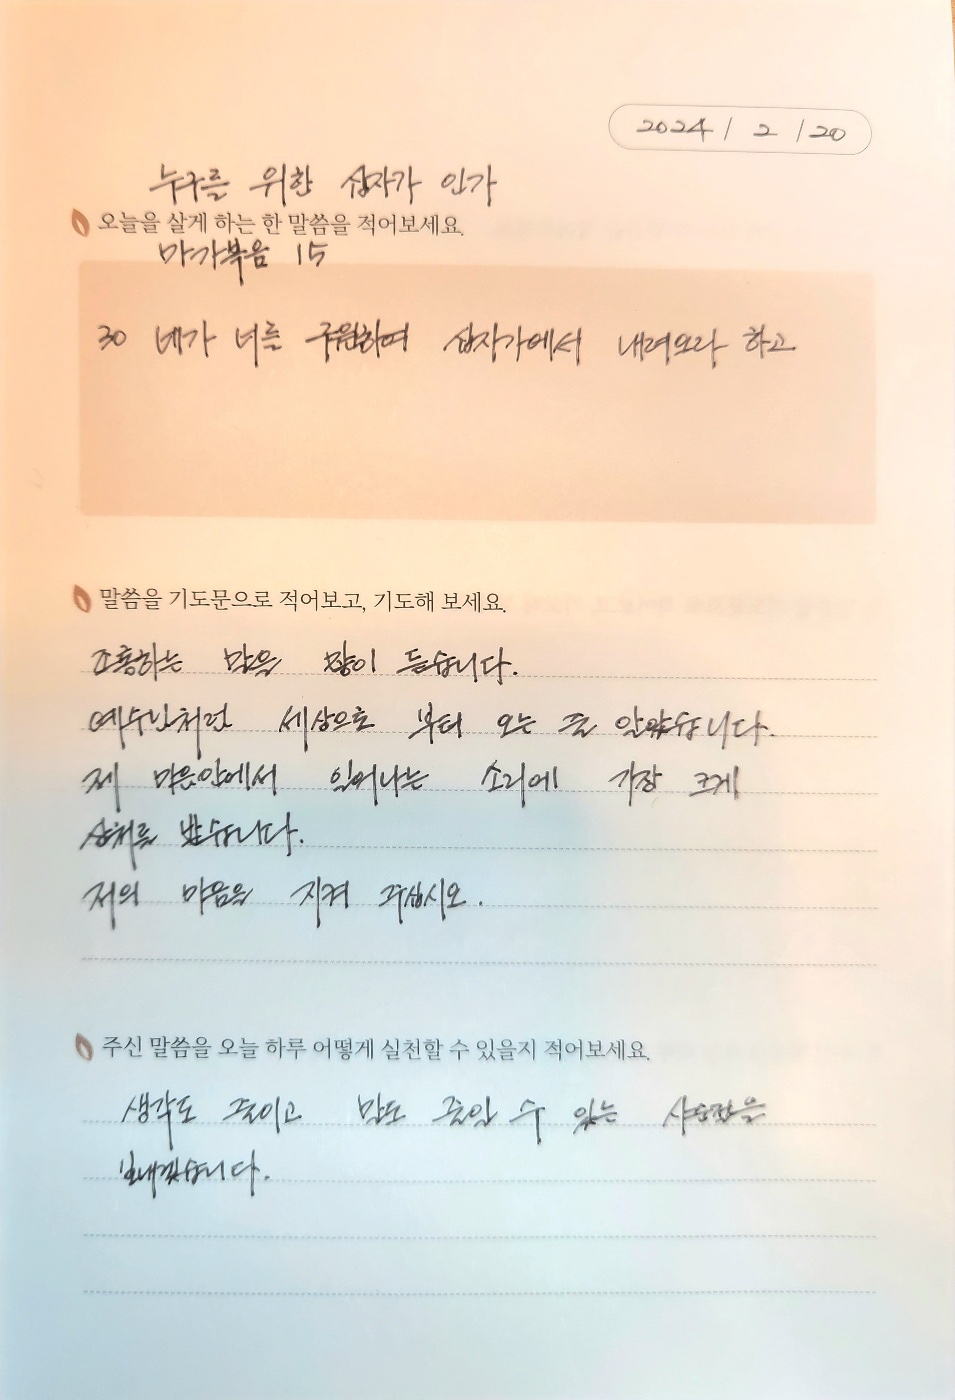 2024 / 2 / 20
누구를 위한 십자가 인가
오늘을 살게 하는 한 말씀을 적어보세요.
마가복음 15
30 네가 너를 구원하여 십자가에서 내려오라 하고
말씀을 기도문으로 적어보고, 기도해 보세요.
조롱하는 말을 많이 듣습니다.
예수님처럼 세상으로 부터 오는 줄 알았습니다.
제 마음안에서 일어나는 소리에 가장 크게
상처를 받습니다.
저의 마음을 지켜 주십시오.
주신 말씀을 오늘 하루 어떻게 실천할 수 있을지 적어보세요.
생각도 줄이고 말도 줄일 수 있는 사순절을
보내겠습니다.